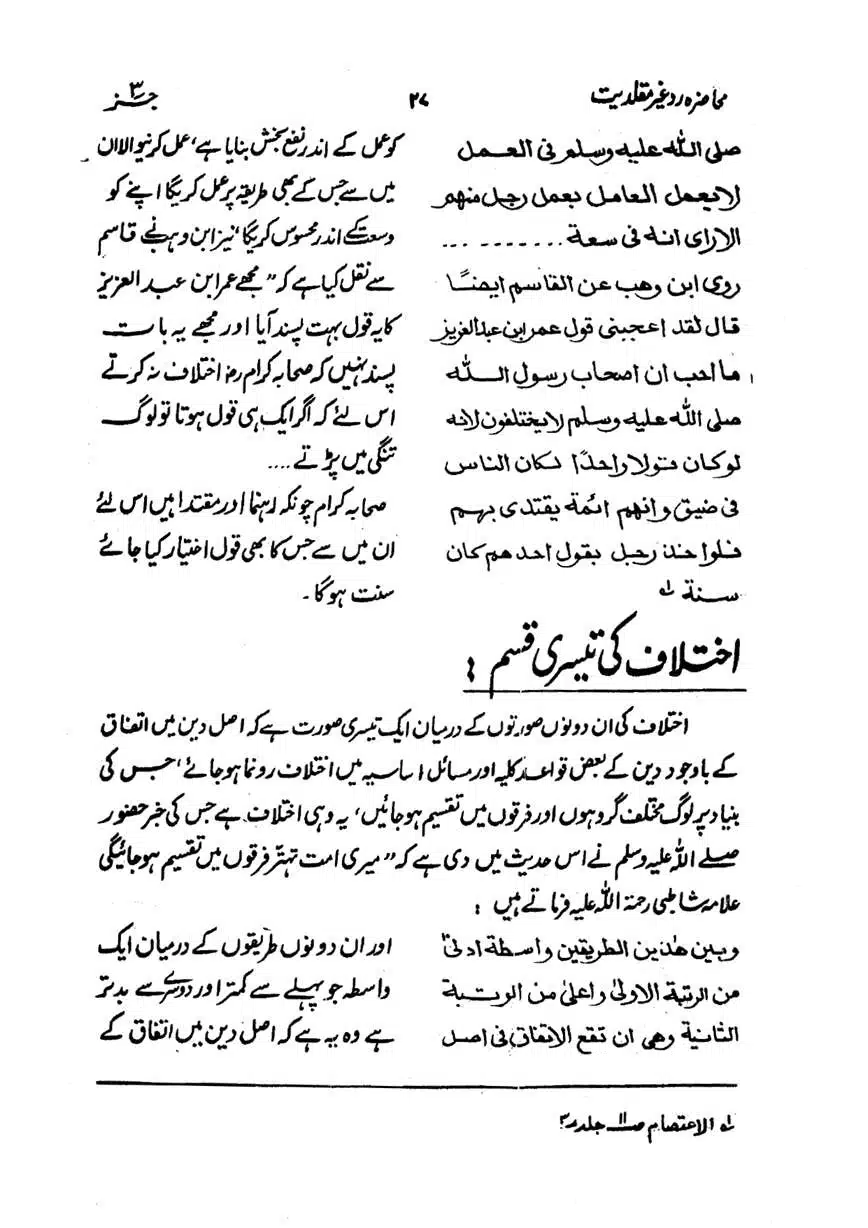 محاضرہ رد غیر مقلدیت ۲۷ جزء ۳
صلی اللہ علیہ وسلم فی العمل
لا یعمل العامل بعمل رجل منهم
الا رای انه فی سعة . . . . . . . . . . .
روی ابن وهب عن القاسم ایضًا
قال لقد اعجبنی قول عمر ابن عبدالعزیز
ما احب ان اصحاب رسول اللہ
صلی اللہ علیہ وسلم لا یختلفون لانه
لو کان قولا واحدًا لکان الناس
فی ضیق وانهم ائمة یقتدی بهم
فلو اخذ رجل بقول احدهم کان
سنة ؎۱
کو عمل کے اندر نفع بخش بنایا ہے، عمل کرنیوالا ان
میں سے جس کے بھی طریقہ پر عمل کریگا اپنے کو
وسعت کے اندر محسوس کریگا، نیز ابن وہب نے قاسم
سے نقل کیا ہے کہ ”مجھے عمر ابن عبدالعزیز
کا یہ قول بہت پسند آیا اور مجھے یہ بات
پسند نہیں کہ صحابہ کرام رضؓ اختلاف نہ کرتے
اس لئے کہ اگر ایک ہی قول ہوتا تو لوگ
تنگی میں پڑتے ....
صحابہ کرام چونکہ رہنما اور مقتدا ہیں اس لئے
ان میں سے جس کا بھی قول اختیار کیا جائے
سنت ہوگا۔
اختلاف کی تیسری قسم :
اختلاف کی ان دونوں صورتوں کے درمیان ایک تیسری صورت ہے کہ اصل دین میں اتفاق
کے باوجود دین کے بعض قواعد کلیہ اور مسائل اساسیہ میں اختلاف رونما ہوجائے، جس کی
بنیاد پر لوگ مختلف گروہوں اور فرقوں میں تقسیم ہوجائیں، یہ وہی اختلاف ہے جس کی خبر حضور
صلے اللہ علیہ وسلم نے اس حدیث میں دی ہے کہ ”میری امت تہتر فرقوں میں تقسیم ہوجائیگی
علامہ شاطبی رحمۃ اللہ علیہ فرماتے ہیں :
وبین هٰذین الطریقین واسطة ادنیٰ
من الرتبة الاولیٰ واعلیٰ من الرتبة
الثانیة وهی ان تقع الاتفاق فی اصل
اور ان دونوں طریقوں کے درمیان ایک
واسطہ جو پہلے سے کمتر اور دوسرے سے بدتر
ہے وہ یہ ہے کہ اصل دین میں اتفاق کے
؎۱ الاعتصام ص۱۱ جلد ۳